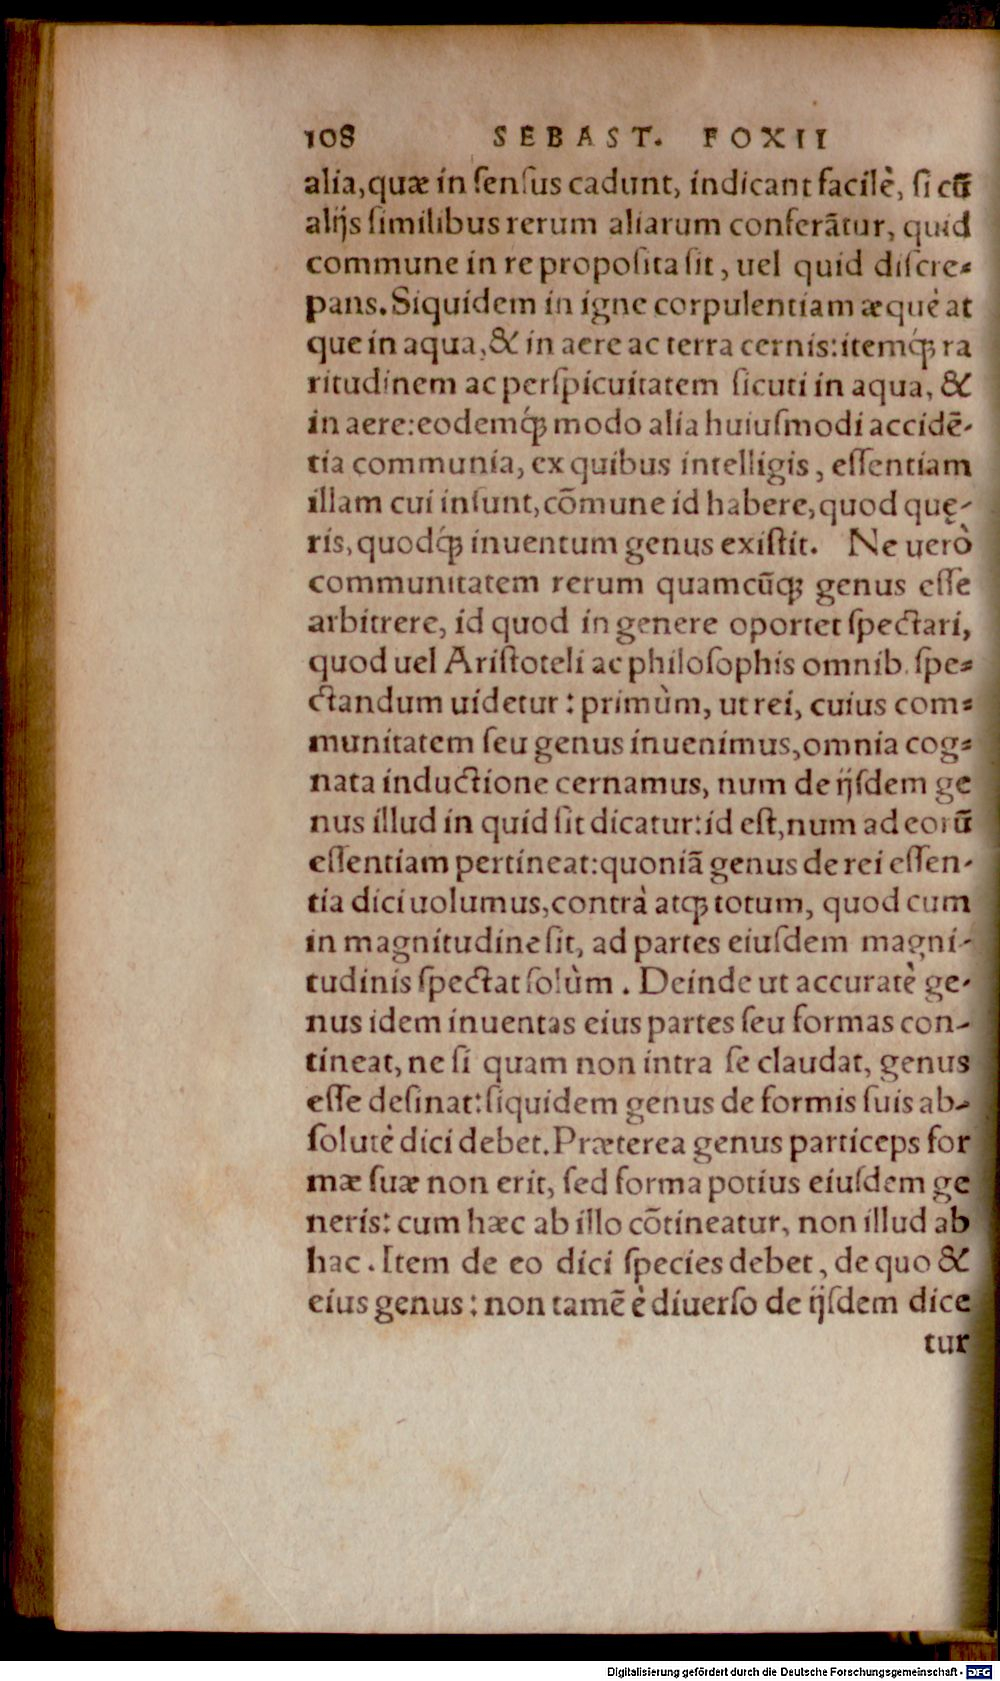 108 SEBAST. FOXII
alia, quæ in ſenſus cadunt, indicant facilè, ſi cũ
alijs ſimilibus rerum aliarum conferãtur, quid
commune in re propoſita ſit, uel quid diſcre-
pans. Siquidem in igne corpulentiam æquè at
que in aqua, & in aere ac terra cernis: itemq́ꝫ ra
ritudinem ac perſpicuitatem ſicuti in aqua, &
in aere: eodemq́ꝫ modo alia huiuſmodi accidẽ-
tia communia, ex quibus intelligis, eſſentiam
illam cui inſunt, cõmune id habere, quod quę-
ris, quodq́ꝫ inuentum genus exiſtit. Ne uerò
communitatem rerum quamcũqꝫ genus eſſe
arbitrere, id quod in genere oportet ſpectari,
quod uel Ariſtoteli ac philoſophis omnib. ſpe-
ctandum uidetur: primùm, ut rei, cuius com-
munitatem ſeu genus inuenimus, omnia cog-
nata inductione cernamus, num de ijſdem ge
nus illud in quid ſit dicatur: id eſt, num ad eorũ
eſſentiam pertineat: quoniã genus de rei eſſen-
tia dici uolumus, contrà atqꝫ totum, quod cum
in magnitudine ſit, ad partes eiuſdem magni-
tudinis ſpectat ſolùm. Deinde ut accuratè ge-
nus idem inuentas eius partes ſeu formas con-
tineat, ne ſi quam non intra ſe claudat, genus
eſſe deſinat: ſiquidem genus de formis ſuis ab-
ſolutè dici debet. Præterea genus particeps for
mæ ſuæ non erit, ſed forma potius eiuſdem ge
neris: cum hæc ab illo cõtineatur, non illud ab
hac. Item de eo dici ſpecies debet, de quo &
eius genus: non tamẽ è diuerſo de ijſdem dice
tur
Digitalisierung gefördert durch die Deutsche Forschungsgemeinschaft - DFG